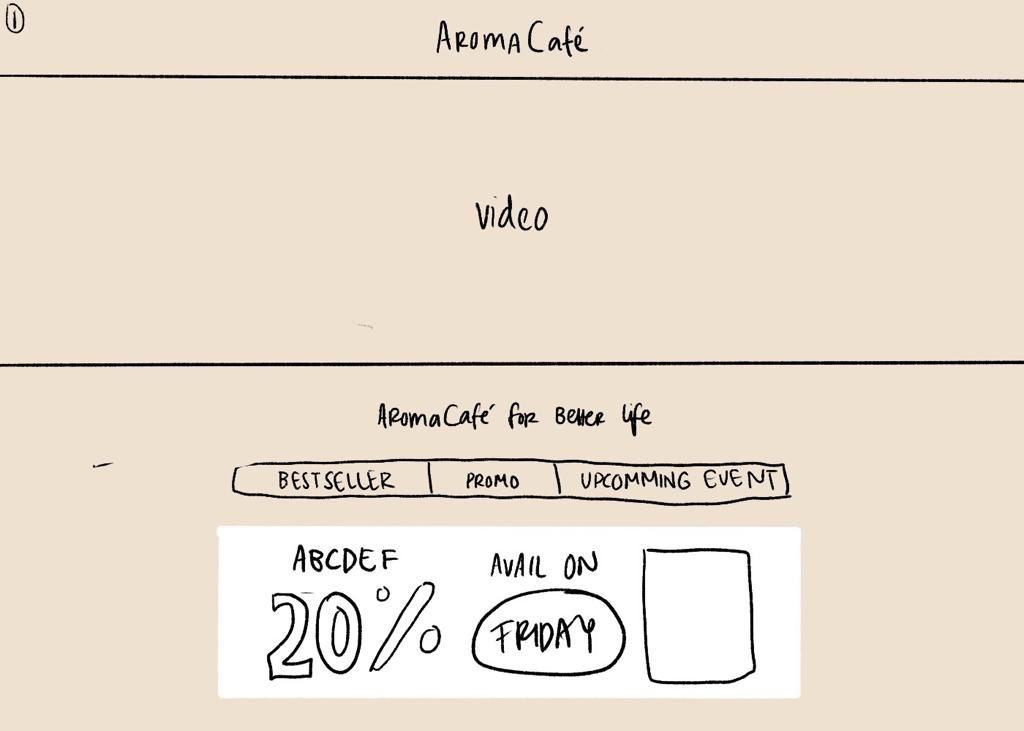 ①
AROMA Café
video
AROMA Café for Better life
BESTSELLER PROMO UPCOMMING EVENT
ABCDEF AVAIL ON
20% FRIDAY